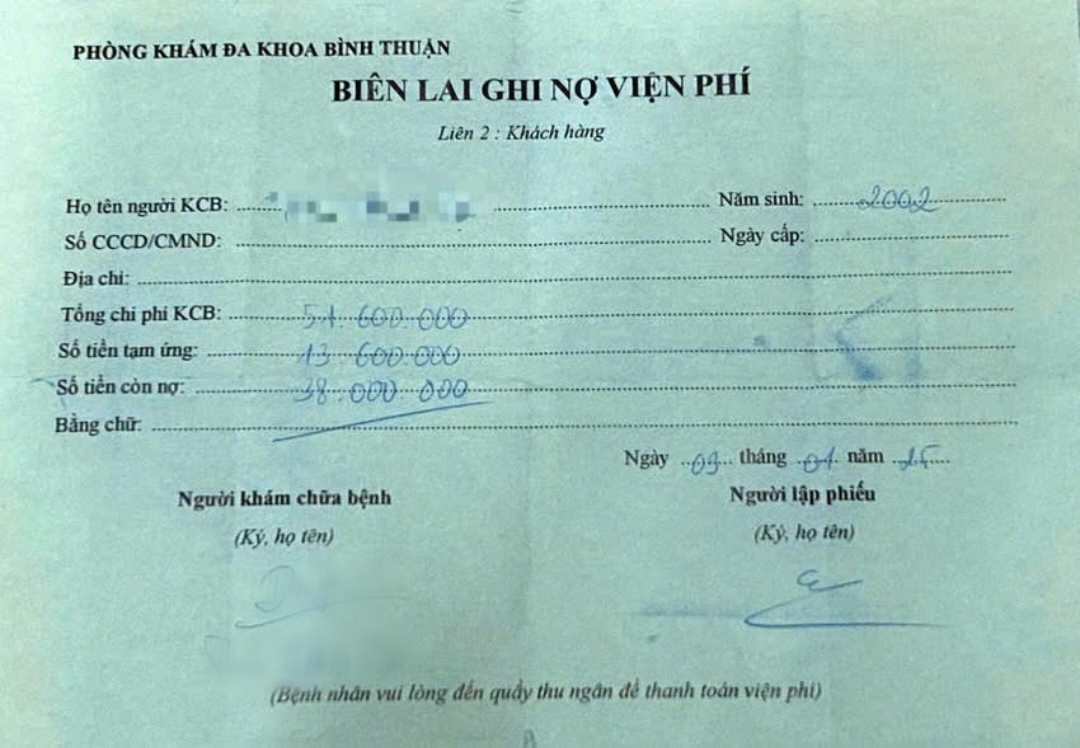 PHÒNG KHÁM ĐA KHOA BÌNH THUẬN
BIÊN LAI GHI NỢ VIỆN PHÍ
Liên 2 : Khách hàng
Họ tên người KCB: Năm sinh: 2002
Số CCCD/CMND: Ngày cấp:
Địa chỉ:
Tổng chi phí KCB: 51.600.000
Số tiền tạm ứng: 13.600.000
Số tiền còn nợ: 38.000.000
Bằng chữ:
Ngày 03 tháng 01 năm 25
Người khám chữa bệnh Người lập phiếu
(Ký, họ tên) (Ký, họ tên)
(Bệnh nhân vui lòng đến quầy thu ngân để thanh toán viện phí)